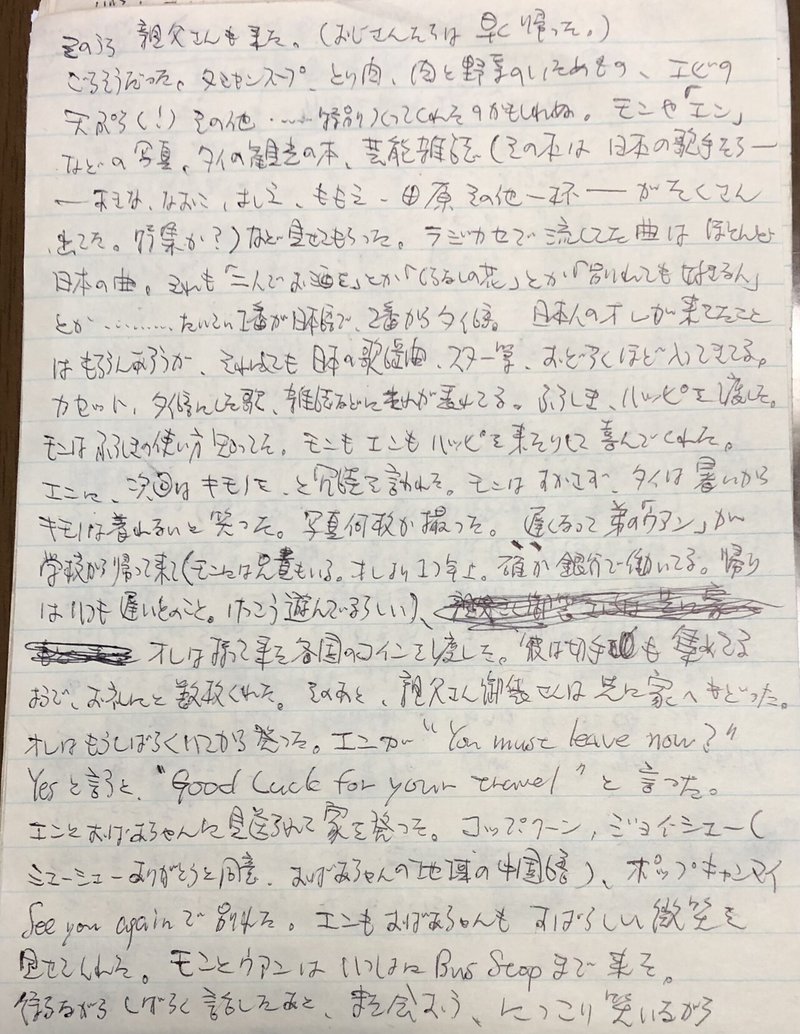 そのうち 親父さんも来た。(おじさんたちは 早く帰った。)
ごちそうだった。タマゴスープ、とり肉、肉と野菜のいためもの、エビの
天ぷら(!) その他 ……特別につくってくれたのかもしれぬ。モンや「エン」
などの写真、タイの観光の本、芸能雑誌(その本は 日本の歌手たち―
― なおこ, よしえ, ももえ 田原 その他一杯 ― がたくさん
出てた。特集か?)など見せてもらった。ラジカセで流してた曲は ほとんど
日本の曲。それも「二人でお酒を」とか「くちなしの花」とか「別れても好きな人」
とか………たいてい1番が日本語で、2番からタイ語。日本人のオレが来てたこと
はもちろんあろうが、それにしても日本の歌謡曲、スター等、おどろくほど入ってきてる。
カセット、タイ語にした歌、雑誌などにそれが表れてる。ふろしき、ハッピを渡した。
モンはふろしきの使い方知ってた。モンもエンもハッピを来たりして喜んでくれた。
エンに、次回はキモノを、と冗談を言われた。モンはすかさず、タイは暑いから
キモノは着れないと笑った。写真何枚か撮った。遅くなって弟の「ウアン」が
学校から帰って来て(モンには兄貴もいる。オレより1つ年上。確か銀行で働いてる。帰り
はいつも遅いとのこと。けっこう遊んでいるらしい)、
オレは持って来た各国のコインを渡した。彼は切手も集めてる
ようで、お礼にと数枚くれた。そのあと、親父さん御袋さんは先に家へもどった。
オレはもうしばらくいてから発った。エンが "You must leave now?"
Yesと言うと、"Good Luck for your travel" と言った。
エンとおばあちゃんに見送られて家を発った。コップクーン, ジョイシェー(
ミューシェーありがとうと同意、おばあちゃんの地域の中国語)、ポップキャンマイ
See you againで別れた。エンもおばあちゃんもすばらしい微笑を
見せてくれた。モンとウアンはいっしょにBus Stopまで来た。
待ちながらしばらく話したあと、また会おう、にっこり笑いながら